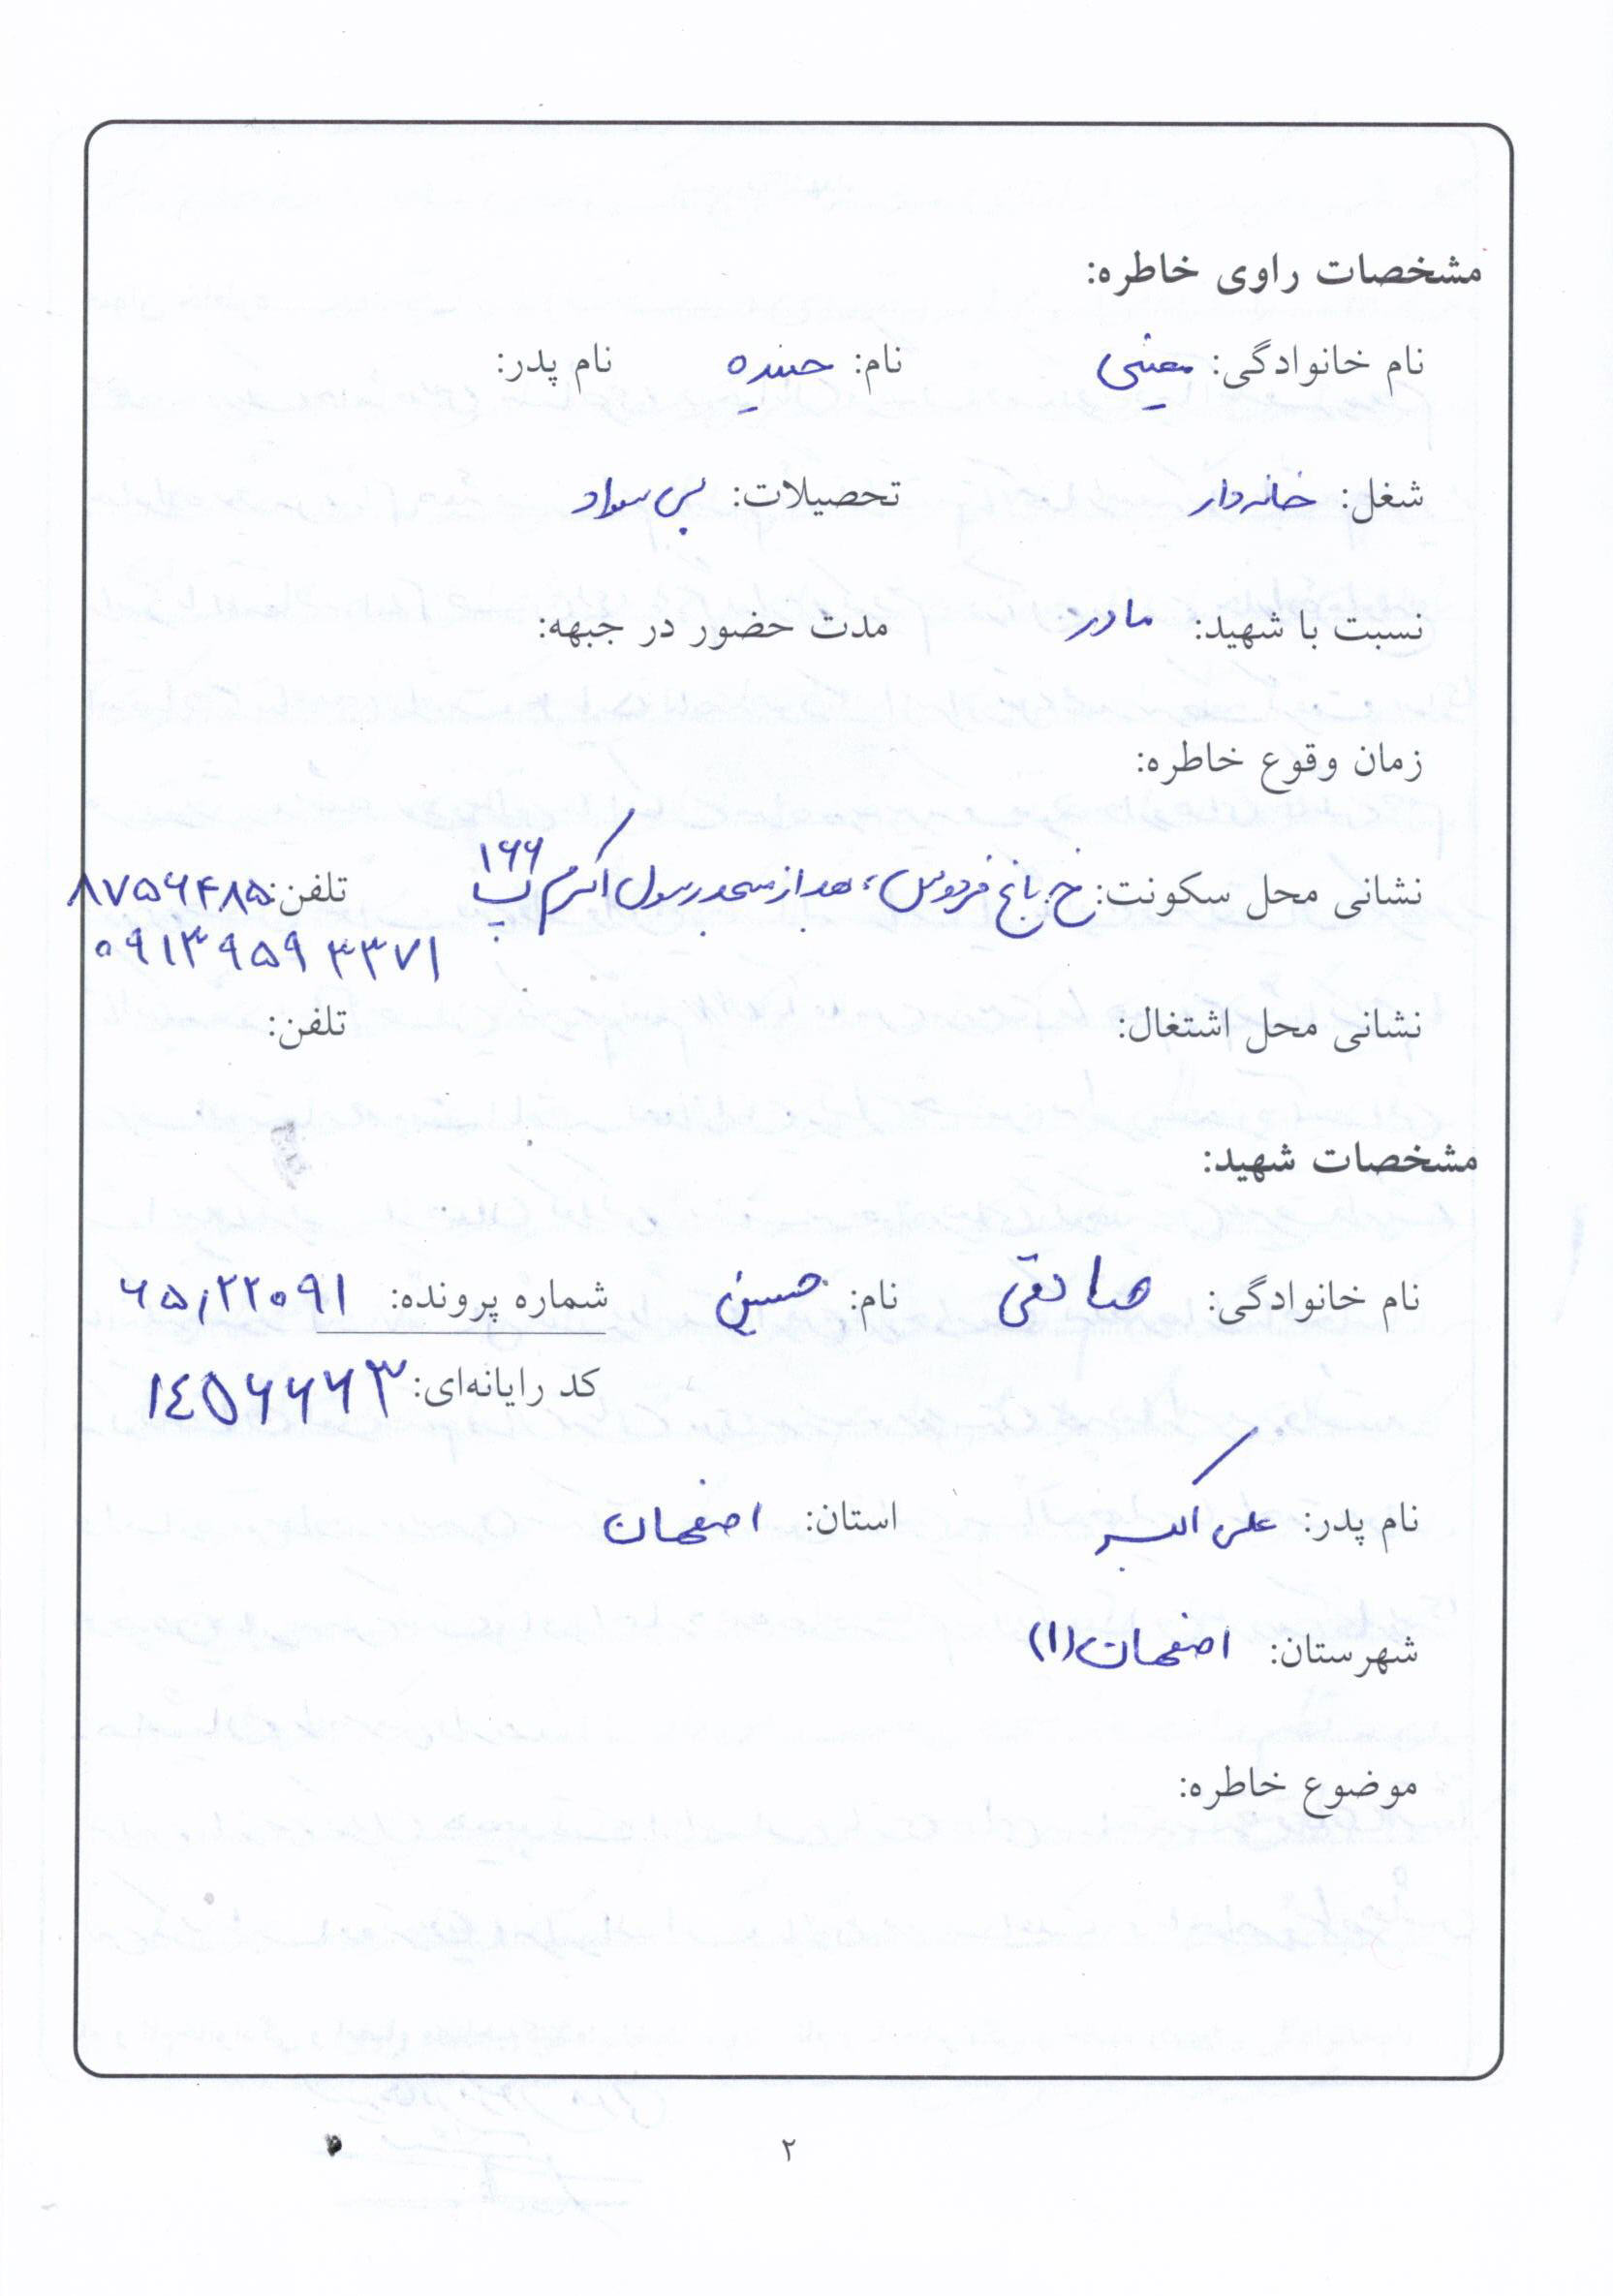 مشخصات راوی خاطره:
نام خانوادگی: معینی نام: حمیده نام پدر:
شغل: خانه‌دار تحصیلات: بی سواد
نسبت با شهید: مادر مدت حضور در جبهه:
زمان وقوع خاطره:
نشانی محل سکونت: خ باغ فردوس، بعد از مسجد رسول اکرم پ ۱۶۶ تلفن: ۸۷۵۶۴۸۵
۰۹۱۳۹۵۹۳۳۷۱
نشانی محل اشتغال: تلفن:
مشخصات شهید:
نام خانوادگی: صادقی نام: حسین شماره پرونده: ۶۵/۲۲۰۹۱
کد رایانه‌ای: ۱٤۵۶۶۶۳
نام پدر: علی اکبر استان: اصفهان
شهرستان: اصفهان (۱)
موضوع خاطره:
۲